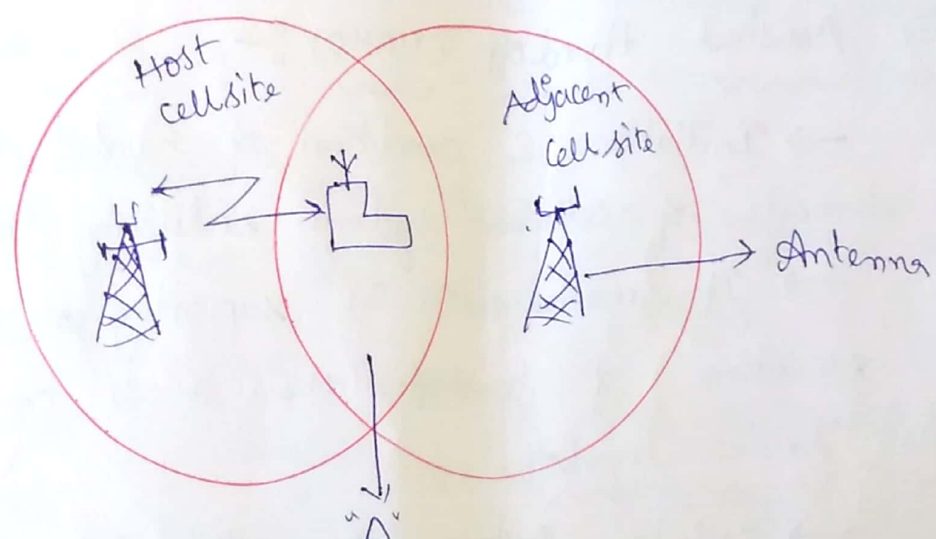 Host
cellsite
Adjacent
Cell site
Antenna